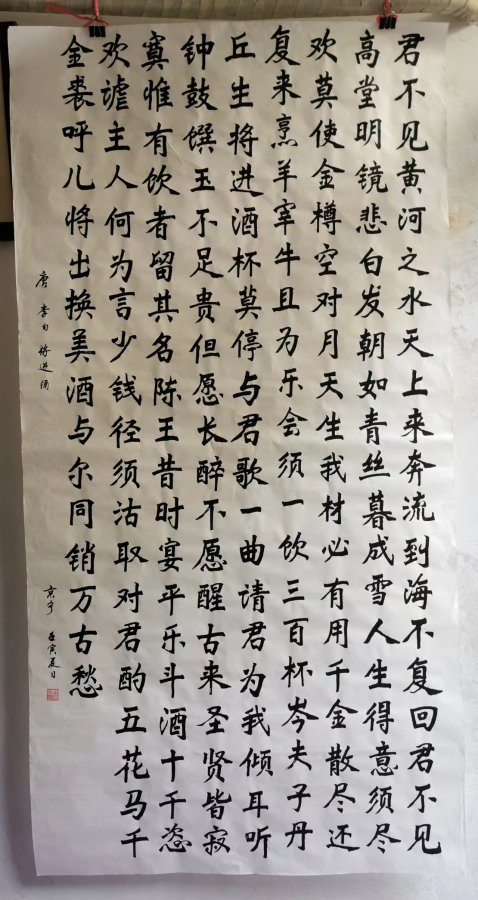 君不见黄河之水天上来奔流到海不复回君不见
高堂明镜悲白发朝如青丝暮成雪人生得意须尽
欢莫使金樽空对月天生我材必有用千金散尽还
复来烹羊宰牛且为乐会须一饮三百杯岑夫子丹
丘生将进酒杯莫停与君歌一曲请君为我倾耳听
钟鼓馔玉不足贵但愿长醉不愿醒古来圣贤皆寂
寞惟有饮者留其名陈王昔时宴平乐斗酒十千恣
欢谑主人何为言少钱径须沽取对君酌五花马千
金裘呼儿将出换美酒与尔同销万古愁
唐 李白 将进酒
京宁 壬寅夏日